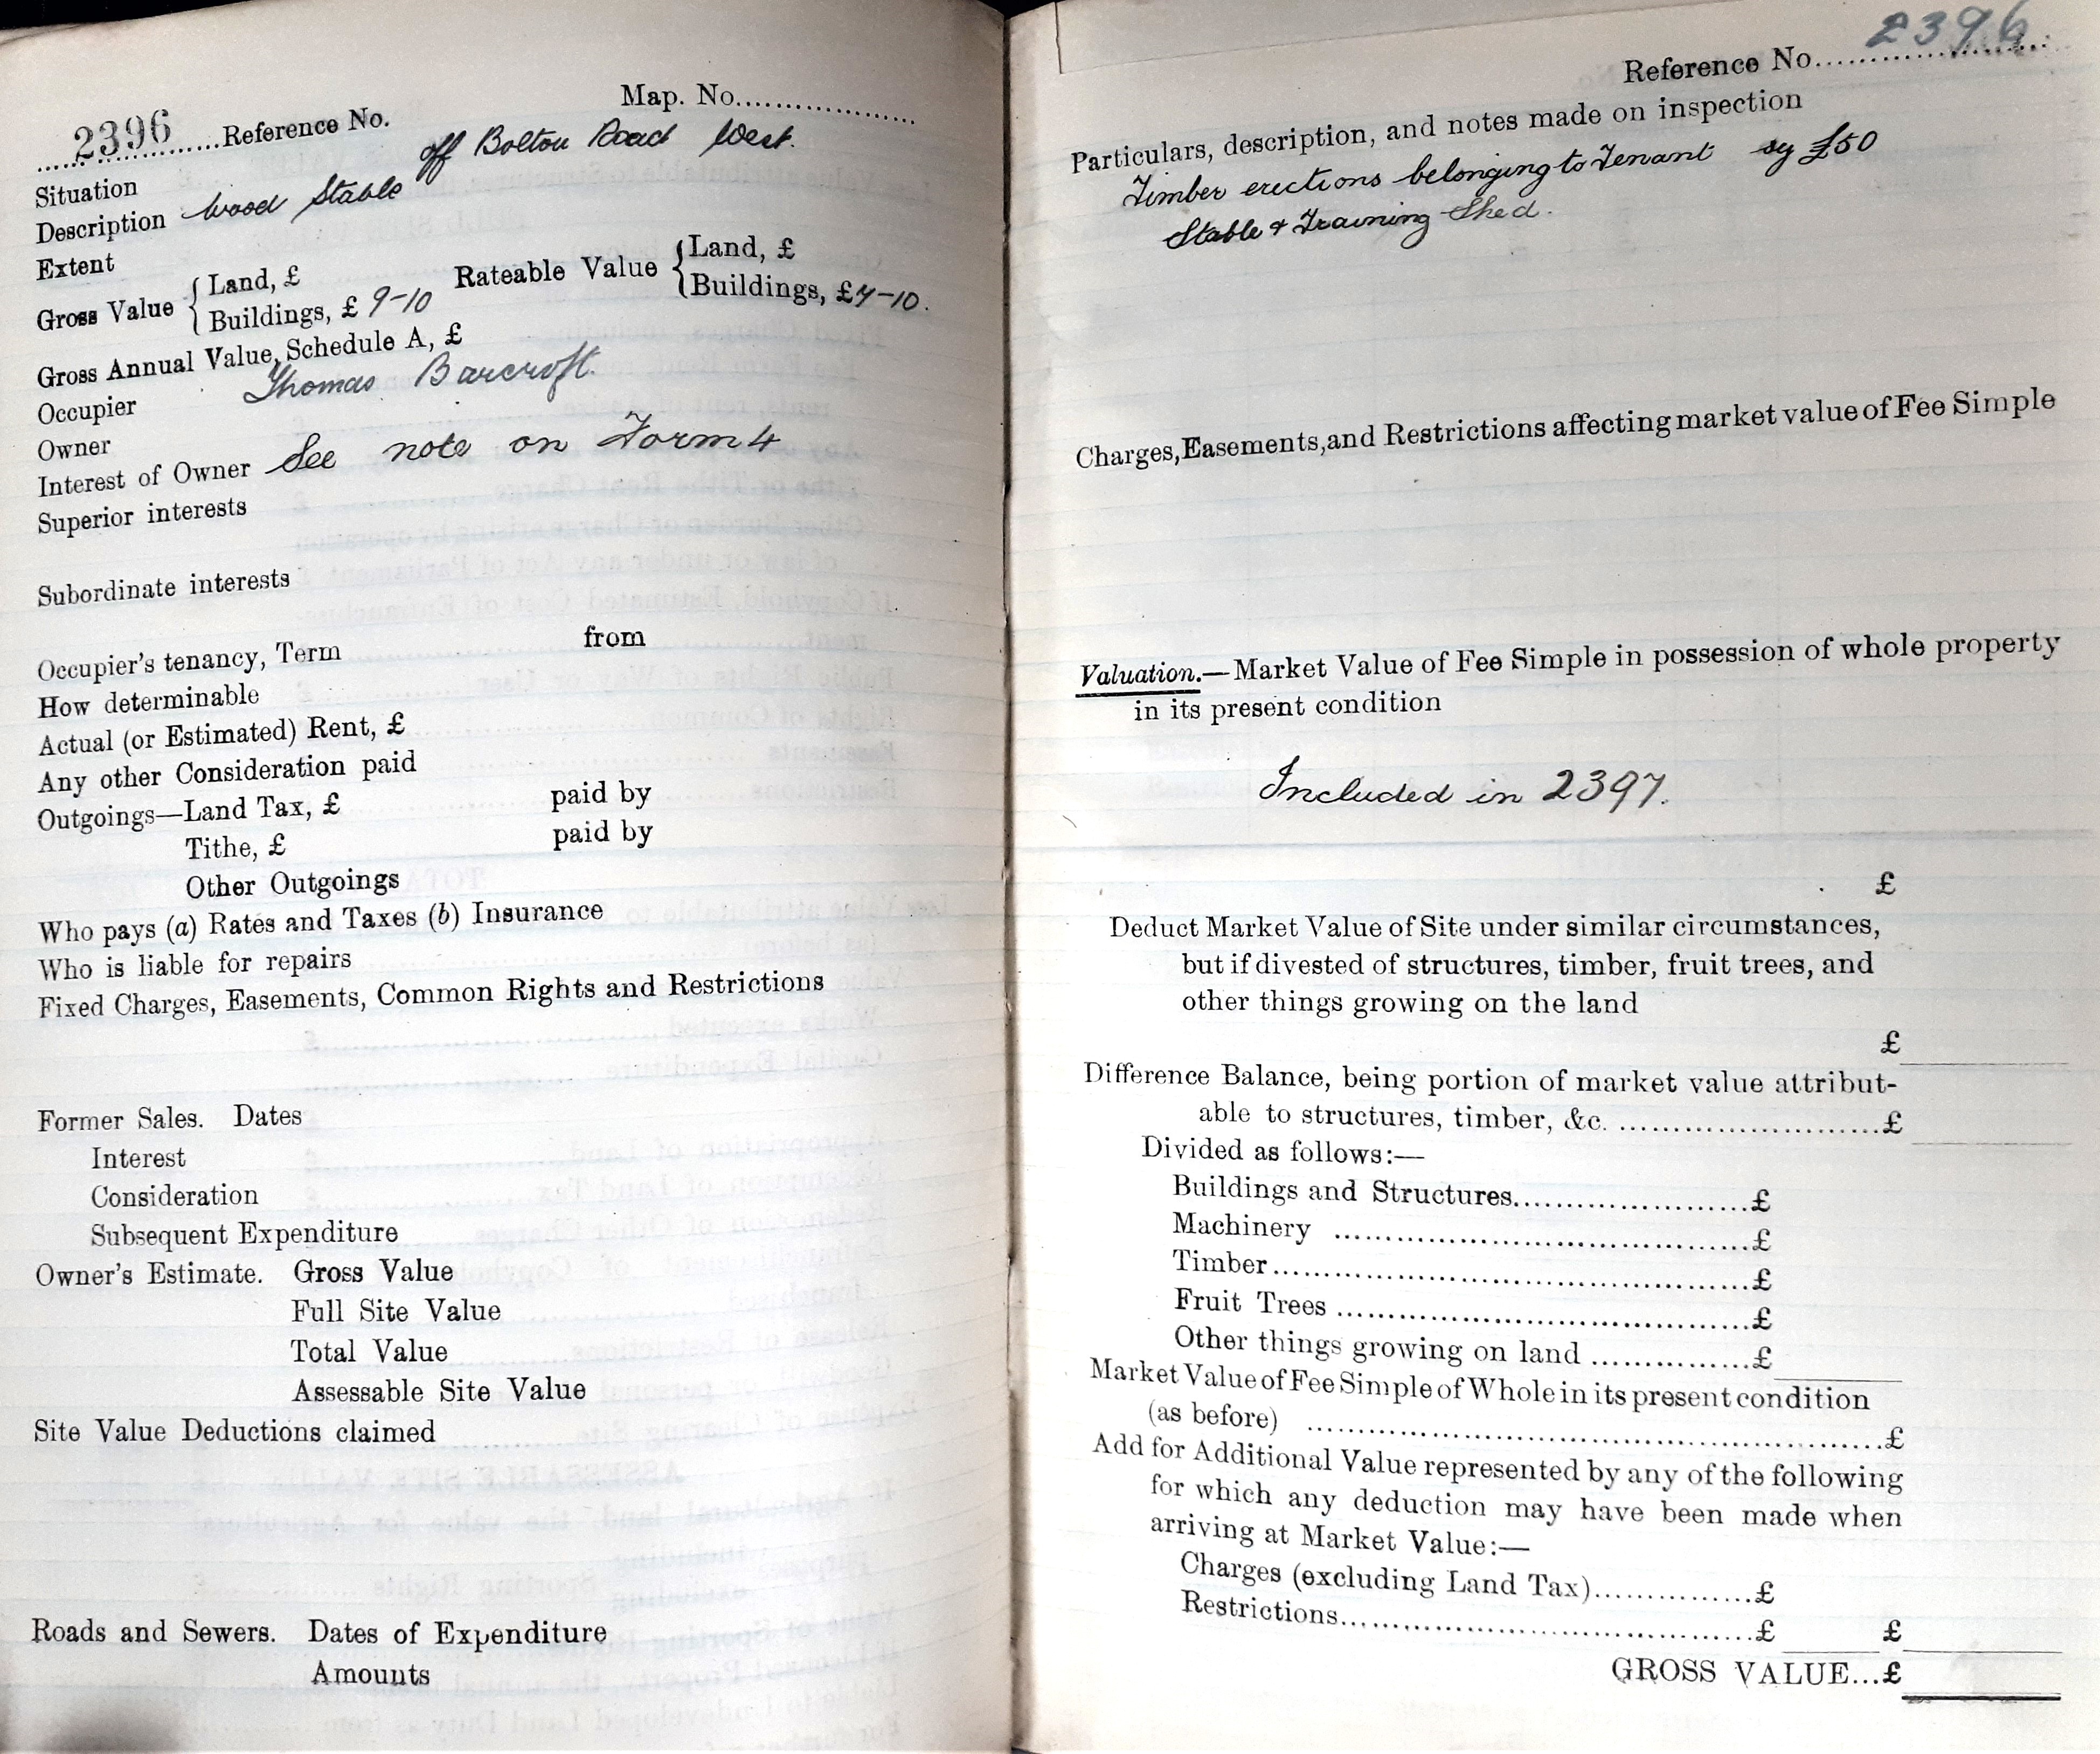 2396 Reference No. Map. No.
Situation off Bolton Road West.
Description Wood Stable
Extent
Gross Value { Land, £ Rateable Value { Land, £
Buildings, £ 9-10 Buildings, £ 7-10.
Gross Annual Value, Schedule A, £
Occupier Thomas Barcroft.
Owner
Interest of Owner See note on Form 4
Superior interests
Subordinate interests
Occupier's tenancy, Term from
How determinable
Actual (or Estimated) Rent, £
Any other Consideration paid
Outgoings—Land Tax, £ paid by
Tithe, £ paid by
Other Outgoings
Who pays (a) Rates and Taxes (b) Insurance
Who is liable for repairs
Fixed Charges, Easements, Common Rights and Restrictions
Former Sales. Dates
Interest
Consideration
Subsequent Expenditure
Owner's Estimate. Gross Value
Full Site Value
Total Value
Assessable Site Value
Site Value Deductions claimed
Roads and Sewers. Dates of Expenditure
Amounts
Reference No. 2396
Particulars, description, and notes made on inspection
Timber erections belonging to Tenant say £50
Stable & Training Shed.
Charges, Easements, and Restrictions affecting market value of Fee Simple
Valuation.—Market Value of Fee Simple in possession of whole property
in its present condition
Included in 2397.
£
Deduct Market Value of Site under similar circumstances,
but if divested of structures, timber, fruit trees, and
other things growing on the land
£
Difference Balance, being portion of market value attribut-
able to structures, timber, &c. £
Divided as follows:—
Buildings and Structures £
Machinery £
Timber £
Fruit Trees £
Other things growing on land £
Market Value of Fee Simple of Whole in its present condition
(as before) £
Add for Additional Value represented by any of the following
for which any deduction may have been made when
arriving at Market Value:—
Charges (excluding Land Tax) £
Restrictions £ £
GROSS VALUE...£